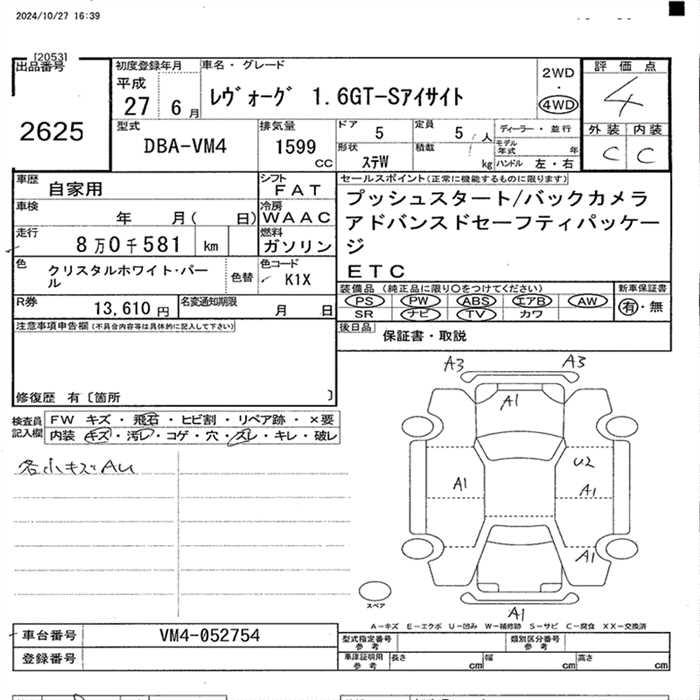 2024/10/27 16:39
[2053]
出品番号
2625
初度登録年月
平成
27 6月
車名・グレード
ﾚｳﾞｫｰｸﾞ 1.6GT-Sｱｲｻｲﾄ
2WD
・
4WD
評価点
4
外装 内装
C C
型式
DBA-VM4
排気量
1599
CC
ドア
5
定員
5 人
形状
ｽﾃW
積載
kg
ディーラー・並行
モデル年式 年
ハンドル 左・右
車歴
自家用
シフト
FAT
車検
年 月( 日)
冷房
WAAC
走行
8万0千581 km
燃料
ガソリン
色
クリスタルホワイト・パール
色替
色コード
K1X
R券
13,610円
名変通知期限
月 日
セールスポイント(正常に機能するものに限ります)
プッシュスタート/バックカメラ
アドバンスドセーフティパッケー
ジ
ETC
装備品(純正品に限り○をつけてください)
PS PW ABS エアB AW
SR ナビ TV カワ
新車保証書
有・無
後日品
保証書・取説
注意事項申告欄(不具合内容等は具体的に記入して下さい)
修復歴 有〔箇所 〕
検査員記入欄
FW キズ・飛石・ヒビ割・リペア跡・×要
内装 キズ・汚レ・コゲ・穴・スレ・キレ・破レ
各小キズAU
A3 A3
A1
U2
A1 A1
A1
A1
スペア
A-キズ E-エクボ U-凹み W-補修跡 S-サビ C-腐食 XX-交換済
車台番号
VM4-052754
登録番号
型式指定番号
参考
類別区分番号
参考
車庫証明用
参考
長さ cm 幅 cm 高さ cm